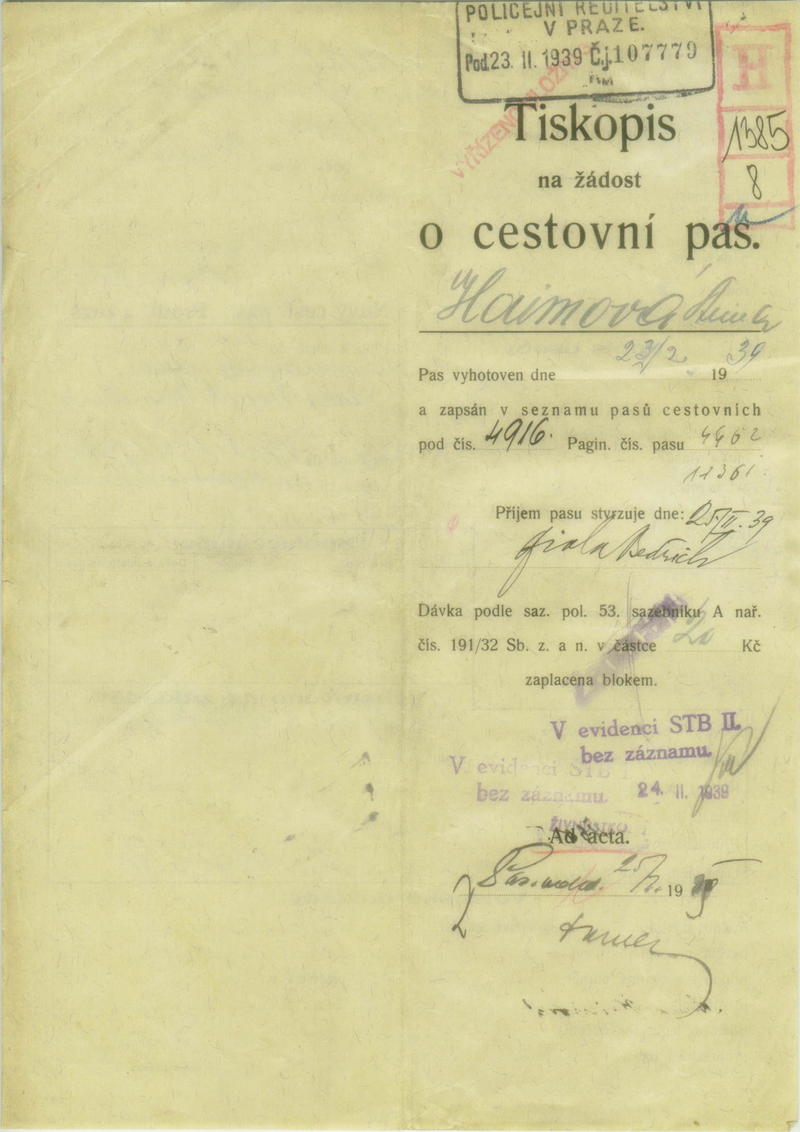 POLICEJNÍ ŘEDITELSTVÍ
V PRAZE.
Pod. 23. II. 1939 Č.j. 107779
H
1385
8
Tiskopis
na žádost
o cestovní pas.
Haimová
23/2 39
Pas vyhotoven dne 19
a zapsán v seznamu pasů cestovních
pod čís. 4916. Pagin. čís. pasu 4462
11361.
Příjem pasu stvrzuje dne: 25/II. 39
Bedřich
Dávka podle saz. pol. 53. sazebníku A nař.
čís. 191/32 Sb. z. a n. v částce Kč
zaplacena blokem.
V evidenci STB II.
bez záznamu.
V evidenci STB
bez záznamu. 24. II. 1939
Ad acta.
19